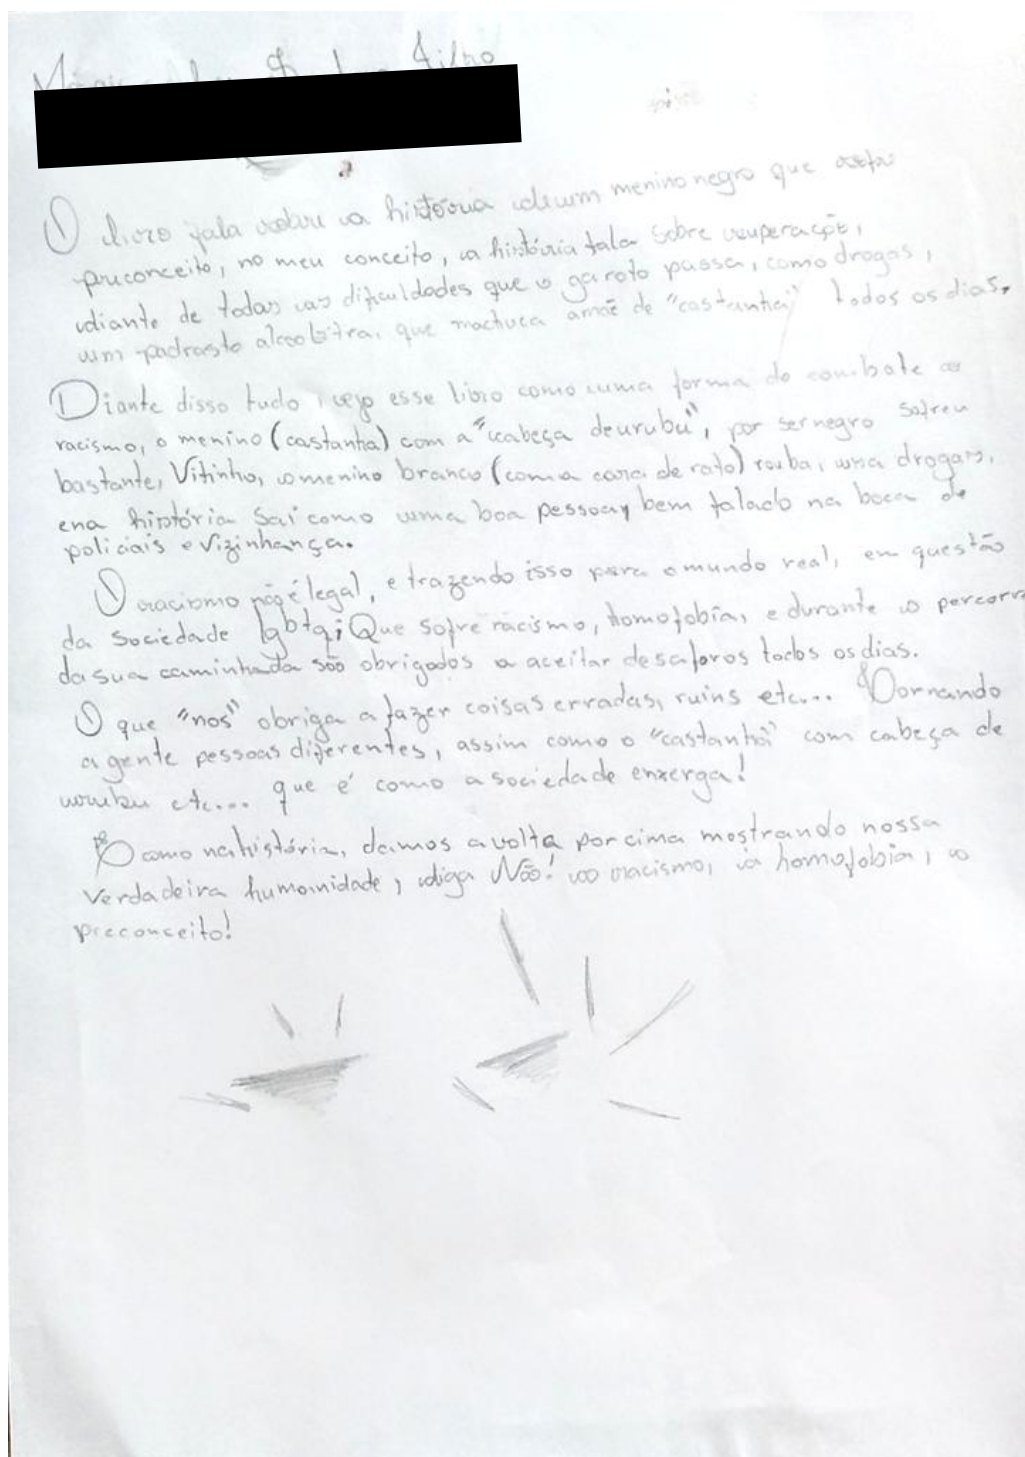 Filho
O livro fala sobre a história de um menino negro que sofre
preconceito, no meu conceito, a história fala sobre
diante de todas as dificuldades que o garoto passa, como drogas,
um padrasto que machuca amãe de "castanha" todos os dias.
Diante disso tudo, vejo esse livro como uma forma de combate ao
racismo, o menino (castanha) com a "cabeça deurubu", por sernegro sofreu
bastante, Vitinho, o menino branco (coma cara de rato) rouba, usa drogas,
ena história Sai como uma boa pessoa, bem falado na boca de
policiais e Vizinhança.
O racismo não é legal, e trazendo isso para o mundo real, em questão
da sociedade lgbtq; Que sofre racismo, homofobia, e durante o
dasua caminhada são obrigados a aceitar desaforos todos osdias.
O que "nos" obriga a fazer coisas erradas, ruins etc... Tornando
agente pessoas diferentes, assim como o "castanha" com cabeça de
urubu etc... que é como a sociedade enxerga!
E como nahistória, damos avolta por cima mostrando nossa
Verdadeira humanidade, diga Não! ao racismo, a homofobia, o
preconceito!